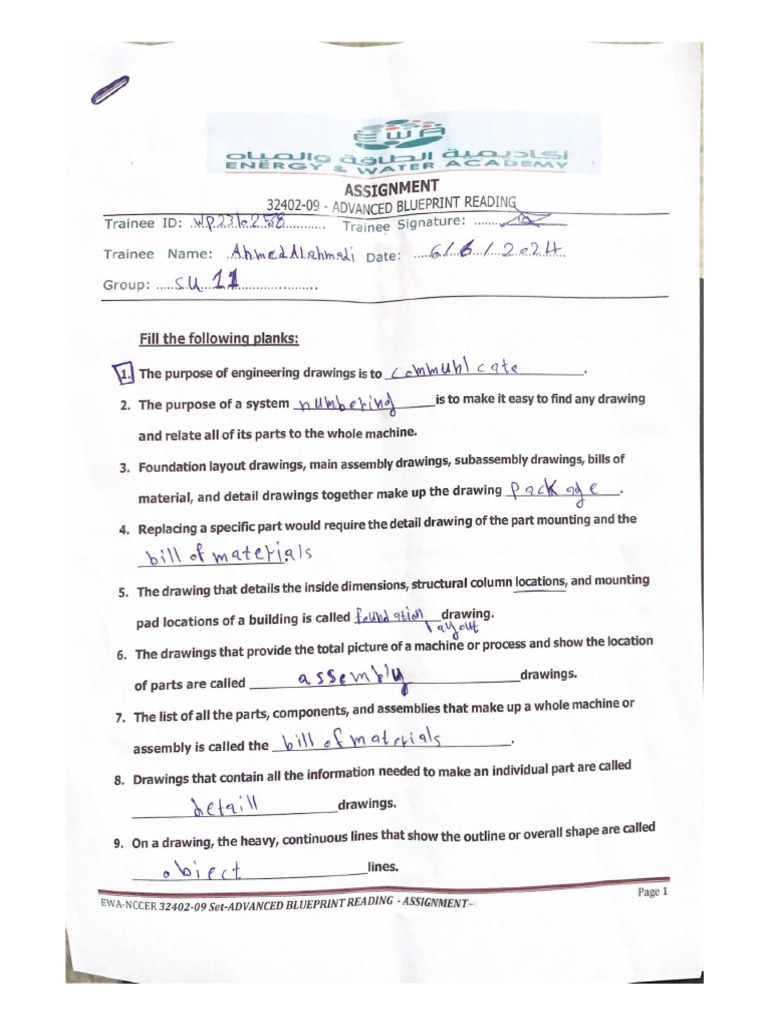 EWA
أكاديمية الطاقة والمياه
ENERGY & WATER ACADEMY
ASSIGNMENT
32402-09 - ADVANCED BLUEPRINT READING
Trainee ID: ..WP236258........... Trainee Signature: ........
Trainee Name: .Ahmed Alahmadi Date: ....6/.6./.2024.
Group: .....SU...11...................
Fill the following planks:
1. The purpose of engineering drawings is to communicate.
2. The purpose of a system numbering is to make it easy to find any drawing
and relate all of its parts to the whole machine.
3. Foundation layout drawings, main assembly drawings, subassembly drawings, bills of
material, and detail drawings together make up the drawing package.
4. Replacing a specific part would require the detail drawing of the part mounting and the
bill of materials
5. The drawing that details the inside dimensions, structural column locations, and mounting
pad locations of a building is called foundation drawing.
layout
6. The drawings that provide the total picture of a machine or process and show the location
of parts are called assembly drawings.
7. The list of all the parts, components, and assemblies that make up a whole machine or
assembly is called the bill of materials.
8. Drawings that contain all the information needed to make an individual part are called
detaill drawings.
9. On a drawing, the heavy, continuous lines that show the outline or overall shape are called
object lines.
Page 1
EWA-NCCER 32402-09 Set-ADVANCED BLUEPRINT READING - ASSIGNMENT-